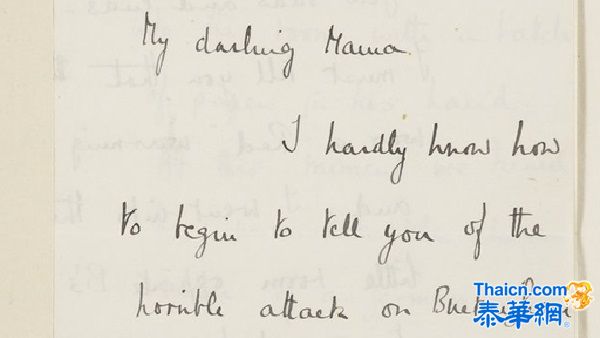 My darling Mama
I hardly know how
to begin to tell you of the
horrible attack on
Thaicn.com
泰華網